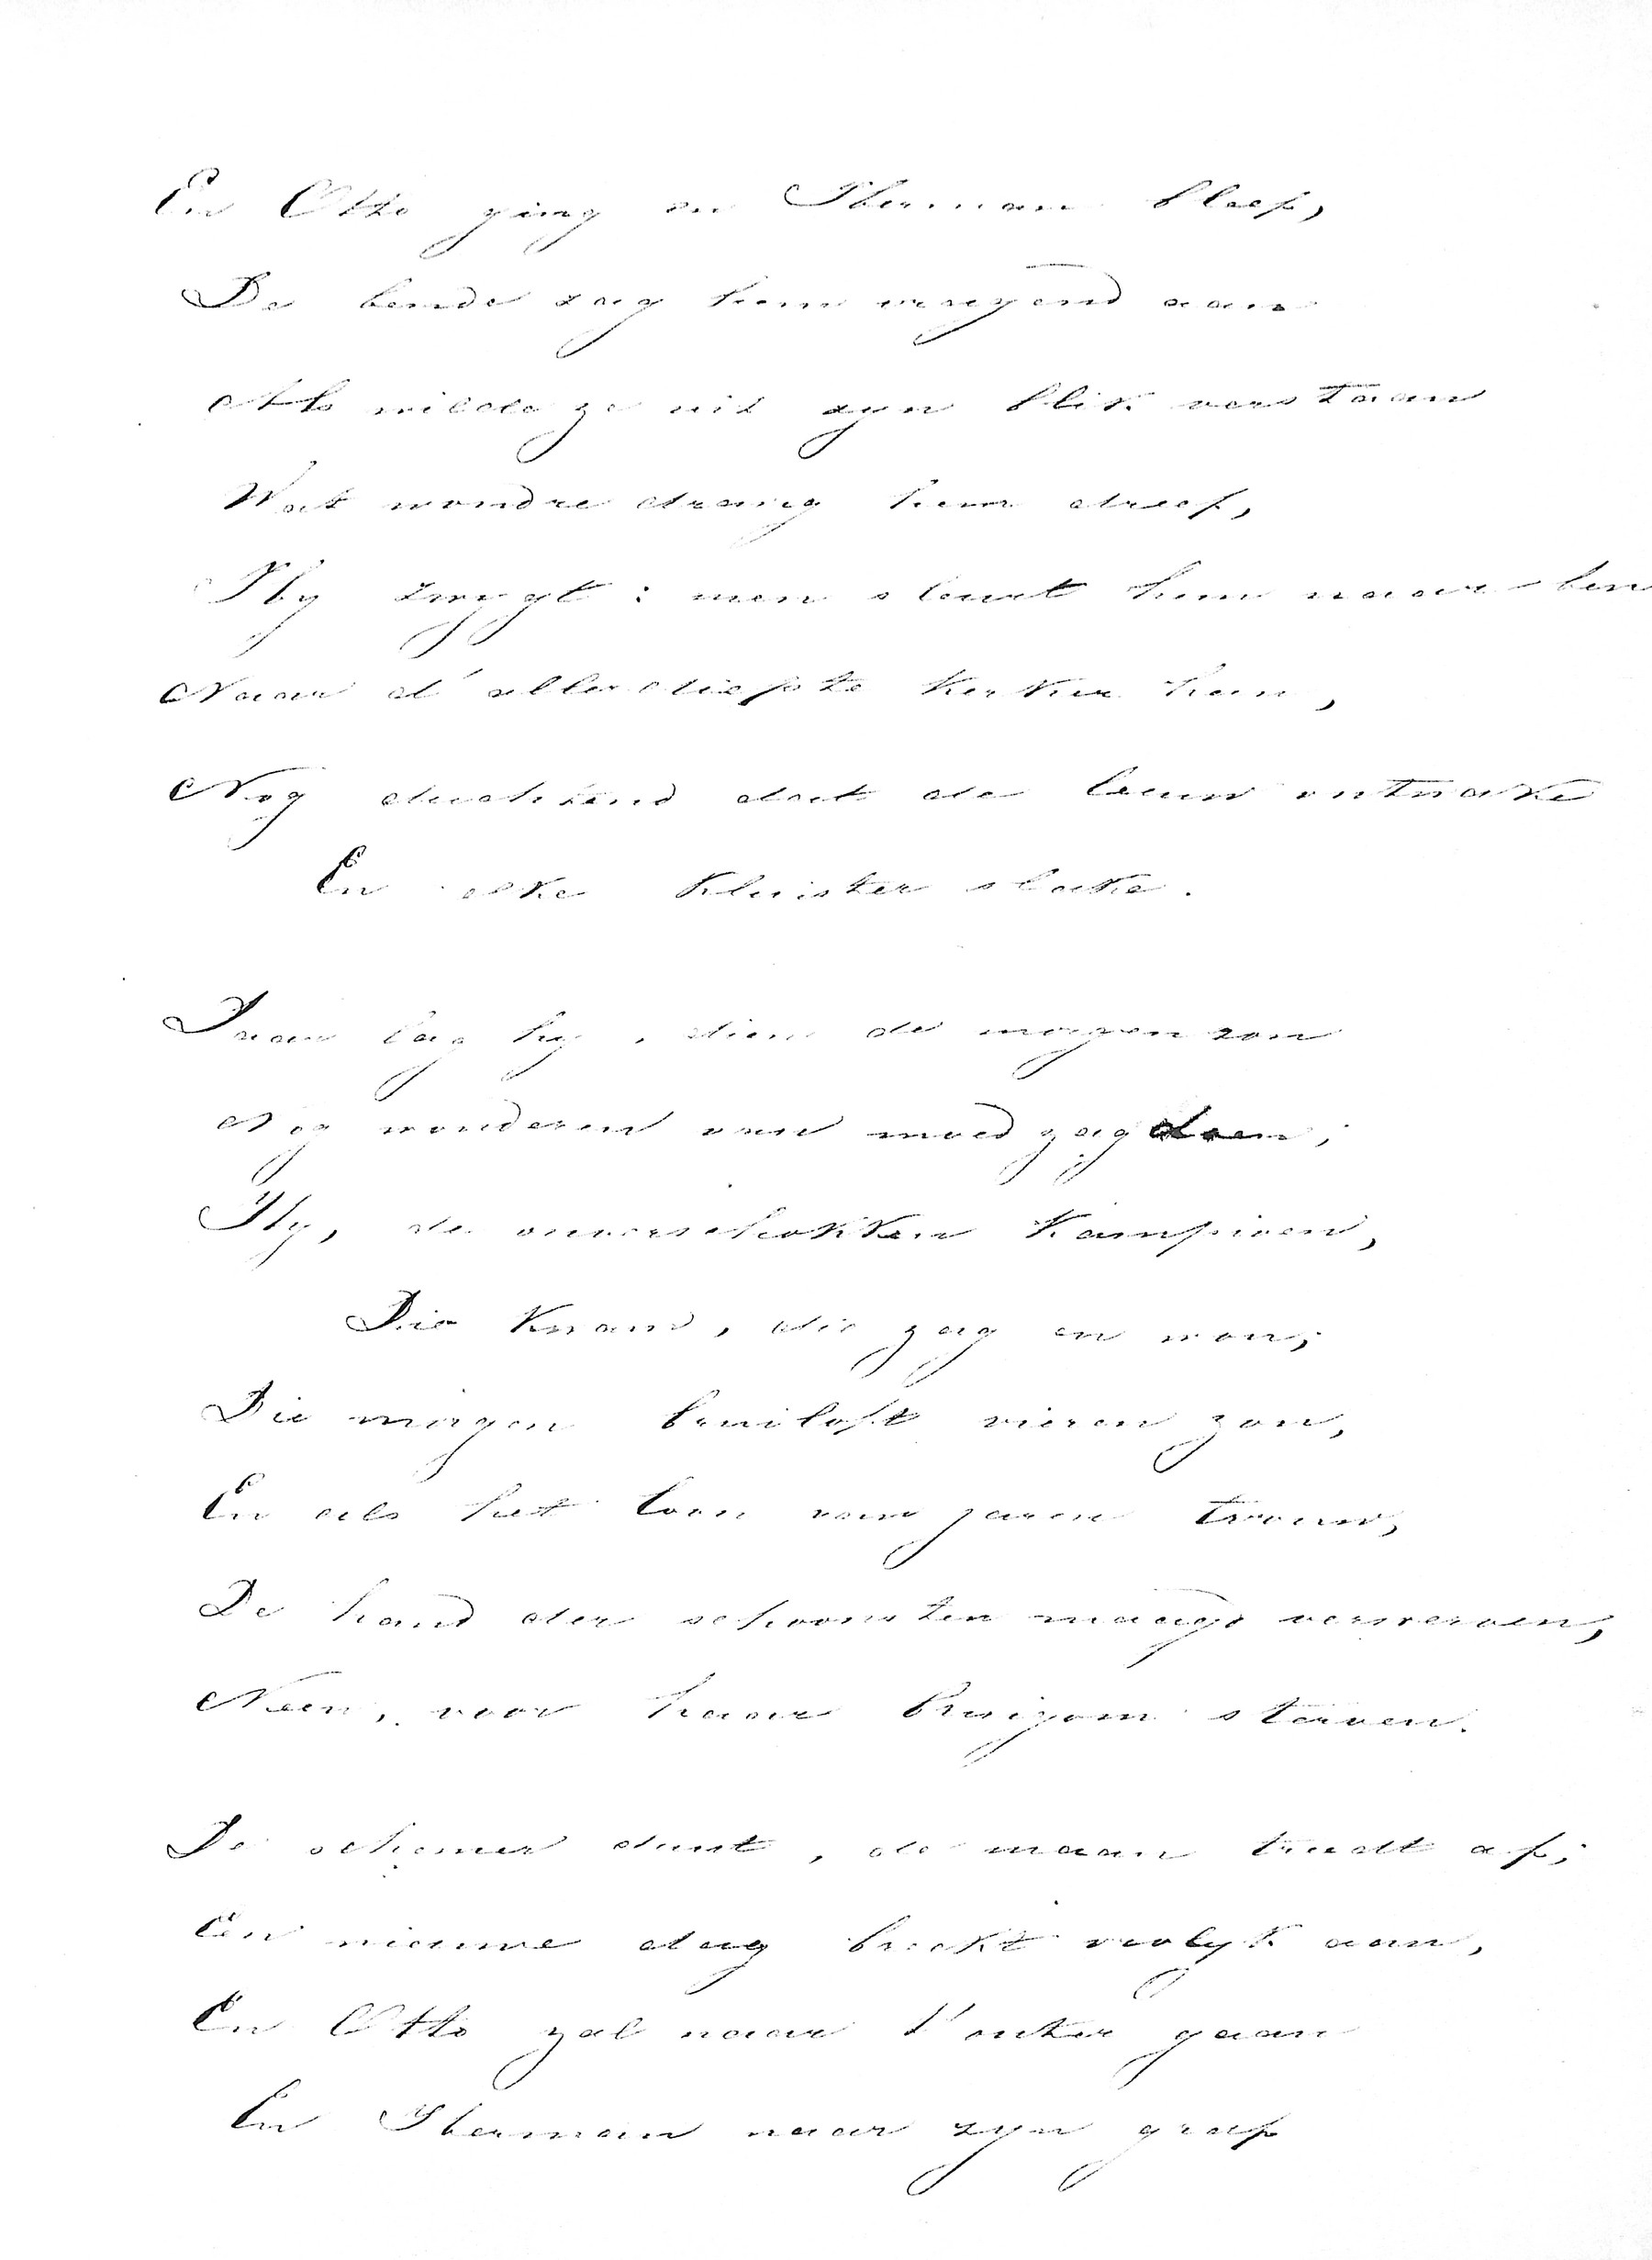 En Otto ging en Herman bleef,
De bende zag hem vragend aan
Als wilde ze uit zyn blik verstaan
Wat wondre drang hem dreef,
Hy zwygt: men sleurt hem naar benê
Naar d' allerdiepste kerker heen,
Nog duchtend dat de leeuw ontwake
En elke kluister slake.
Daar lag hy, dien de morgenzon
Nog wonderen van moed zag doen;
Hy, de onverschokken kampioen,
Die kwam, die zag en won;
Die morgen bruiloft vieren zou,
En als het loon van jaren trouw,
De hand der schoonsten maagd verwerven,
Neen, voor haar bruigom sterven.
De schemer dunt, de maan treedt af;
Een nieuwe dag breekt vrolyk aan,
En Otto zal naar 't outer gaan
En Herman naar zyn graf